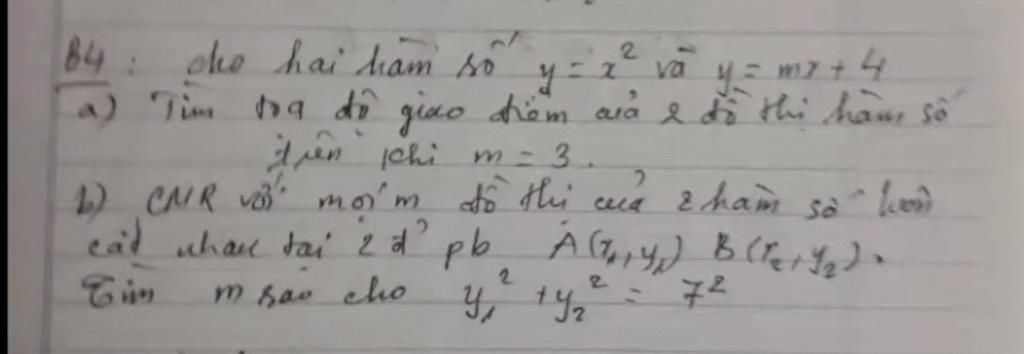 B4: cho hai hàm số y = x² và y = mx + 4
a) Tìm toạ độ giao điểm của 2 đồ thị hàm số
trên khi m = 3.
b) CMR với mọi m đồ thị của 2 hàm số luôn
cắt nhau tại 2 đ' pb A(x₁, y₁) B(x₂, y₂).
Tìm m sao cho y₁² + y₂² = 7²